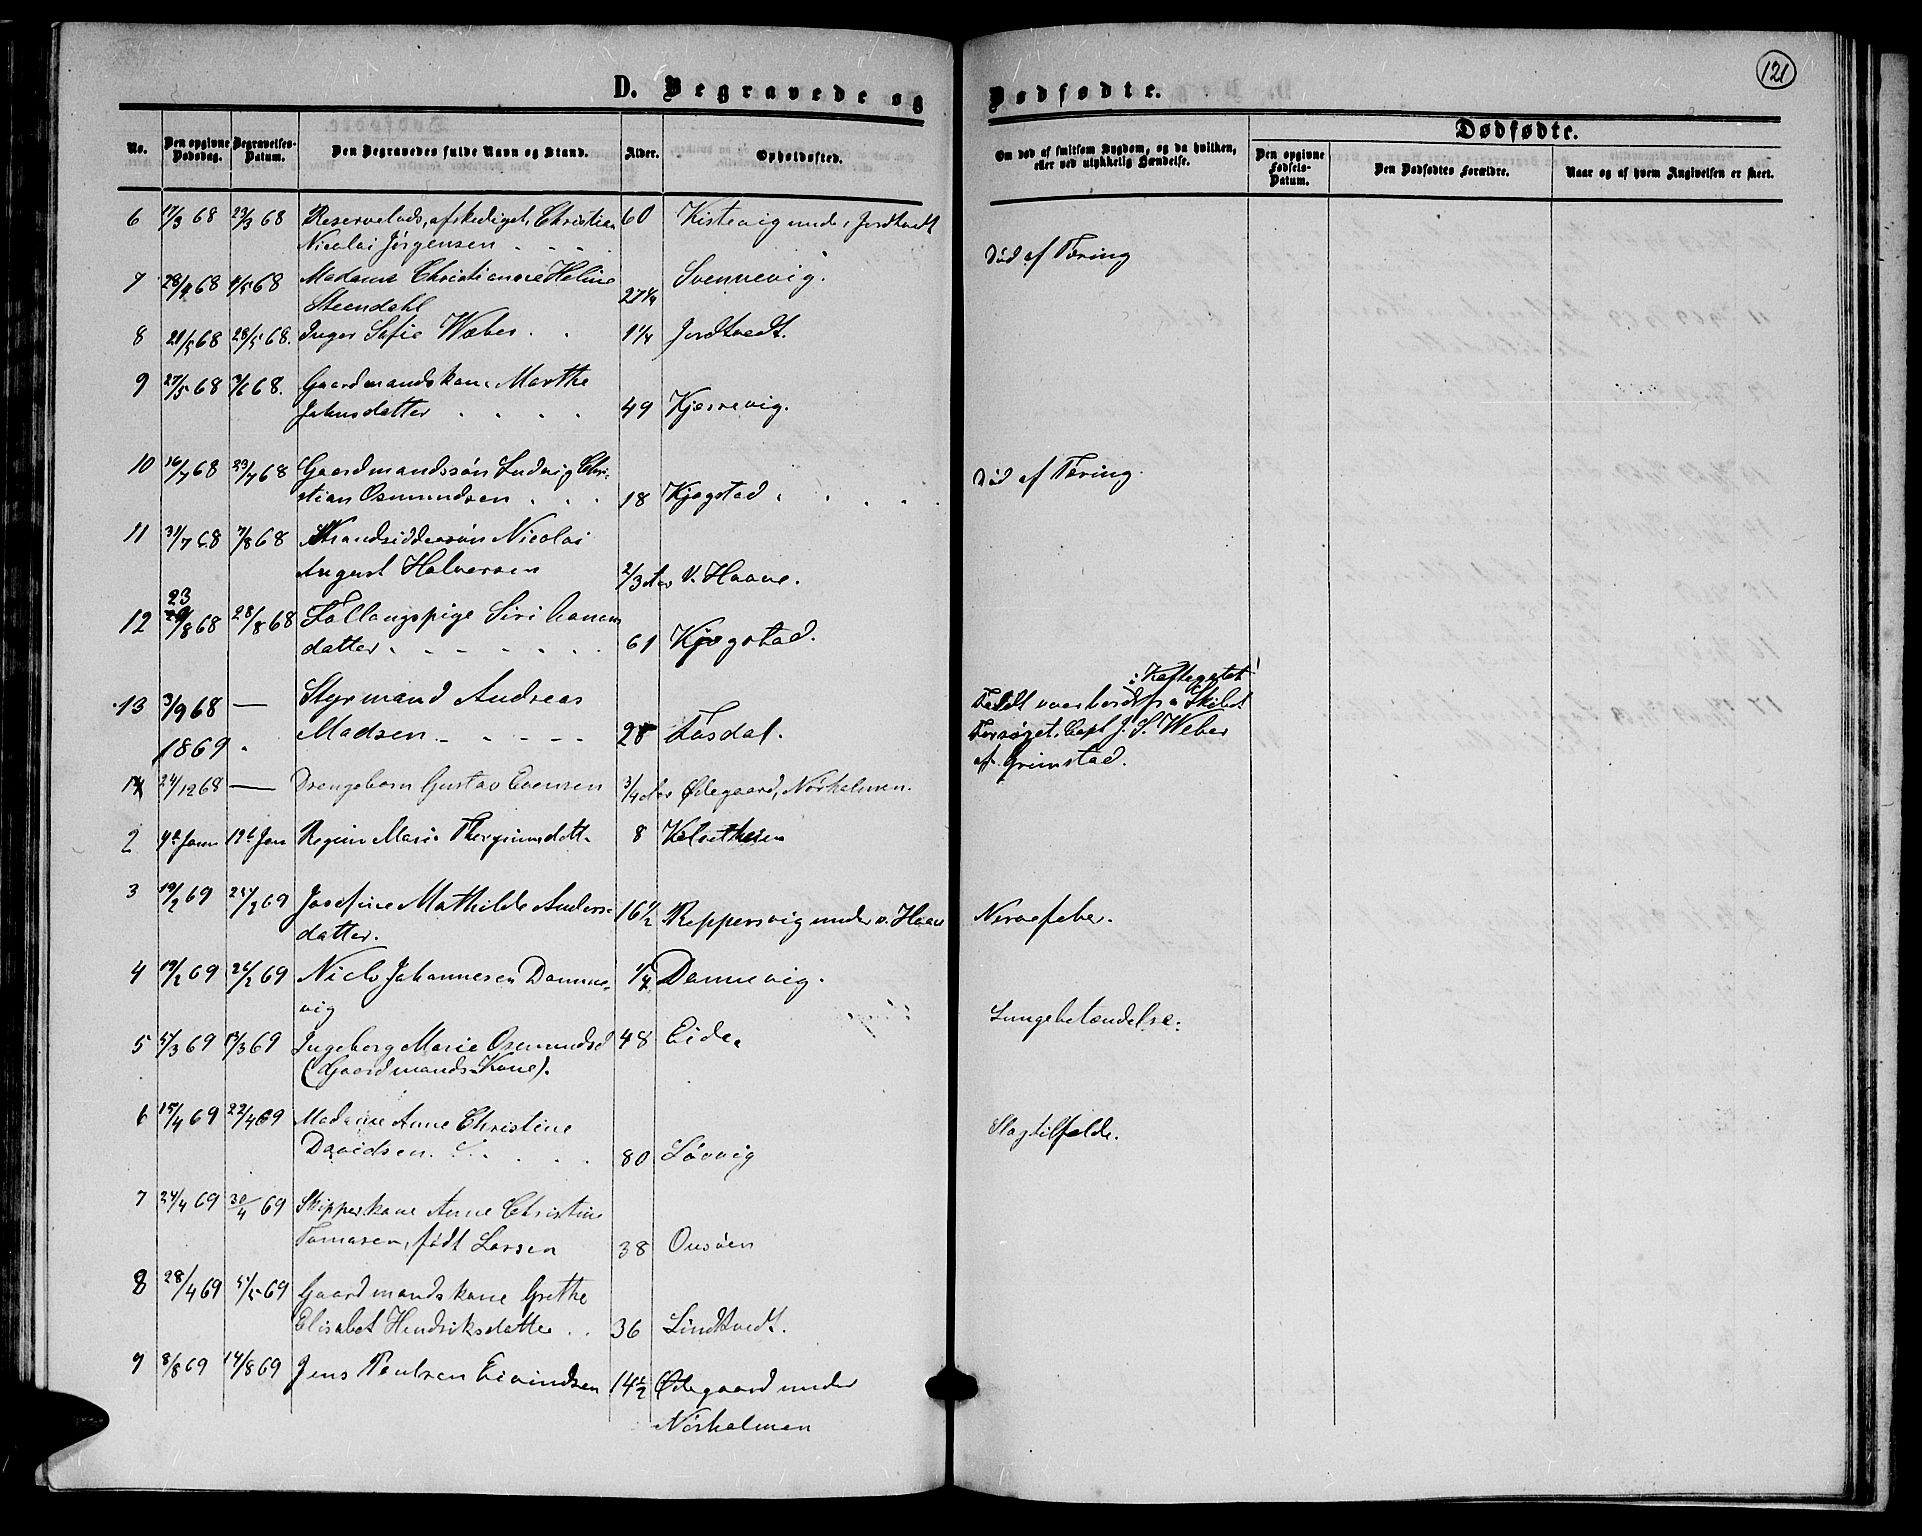 121
D. Begravede og Dødfødte.
Dødfødte.
No.
Den opgivne Dødsdag.
Begravelses-Datum.
Den Begravedes fulde Navn og Stand.
Alder.
Opholdssted.
Om død af smitsom Sygdom, og da hvilken, eller ved ulykkelig Hændelse.
Den opgivne Fødsels-Datum.
Den Dødfødtes Forældre.
Naar og af hvem Angivelsen er skeet.
6 17/3 68 23/3 68 Reservelods, afskediget, Christian 60 Kistevig under Jordtvedt
Nicolai Jørgensen Død af Tæring
7 28/4 68 4/5 68 Madame Christiane Heline Svennevig.
Steendahl 27 1/4
8 21/5 68 28/5 68. Inger Sofie Wæber 1 1/4 Jordtvedt.
9 27/5 68 3/6 68. Gaardmandskone Marthe
Jahnsdatter 49 Kjærrevig.
10 16/7 68 23/7 68 Gaardmandssøn Ludvig Chri- Død af Tæring.
stian Osmundsen 18 Kjøgstad
11 31/7 68 7/8 68 Strandsiddersøn Nicolai
August Halvorsen 2/3 Aar V. Haave.
23
12 /8 68 28/8 68 Fattigpige Siri
datter 61 Kjøgstad.
13 3/9 68 — Styrmand Andreas Kattegatet
Madsen 28 Fosdal. Faldt overbord fra Skibet
1869 Forsøget, Capt J. S. Weber
af Grimstad.
1 24/12 68 — Drengebarn Gustav Evensen 3/4 Aar Ødegaard, Nørholmen.
2 9de Janu 19de Jan Regine Marie Thorgrimsdatt. 8
3 19/2 69 25/2 69 Josefine Mathilde Anders- 16 1/2 Reppersvig under v. Haave Nervefeber.
datter.
4 19/2 69 26/2 69 Niels Johannesen Damme- 1/4 Dannevig.
vig Lungebetændelse.
5 5/3 69 /3 69 Ingeborg Marie Osmundsd 48 Eide.
(Gaardmands-Kone).
6 15/4 69 22/4 69 Madame Anne Christine Slagtilfælde.
Davidsen. 80 Løvvig
7 24/4 69 30/4 69 Skipperkone Anne Christine
Tomasen, født Larsen 38 Onsøen
8 28/4 69 5/5 69 Gaardmandskone Grethe
Elisabet Hendriksdatter 36 Lindtvedt.
9 8/8 69 14/8 69 Jens Poulsen Eivindsen 14 1/2 Ødegaard under
Nørholmen